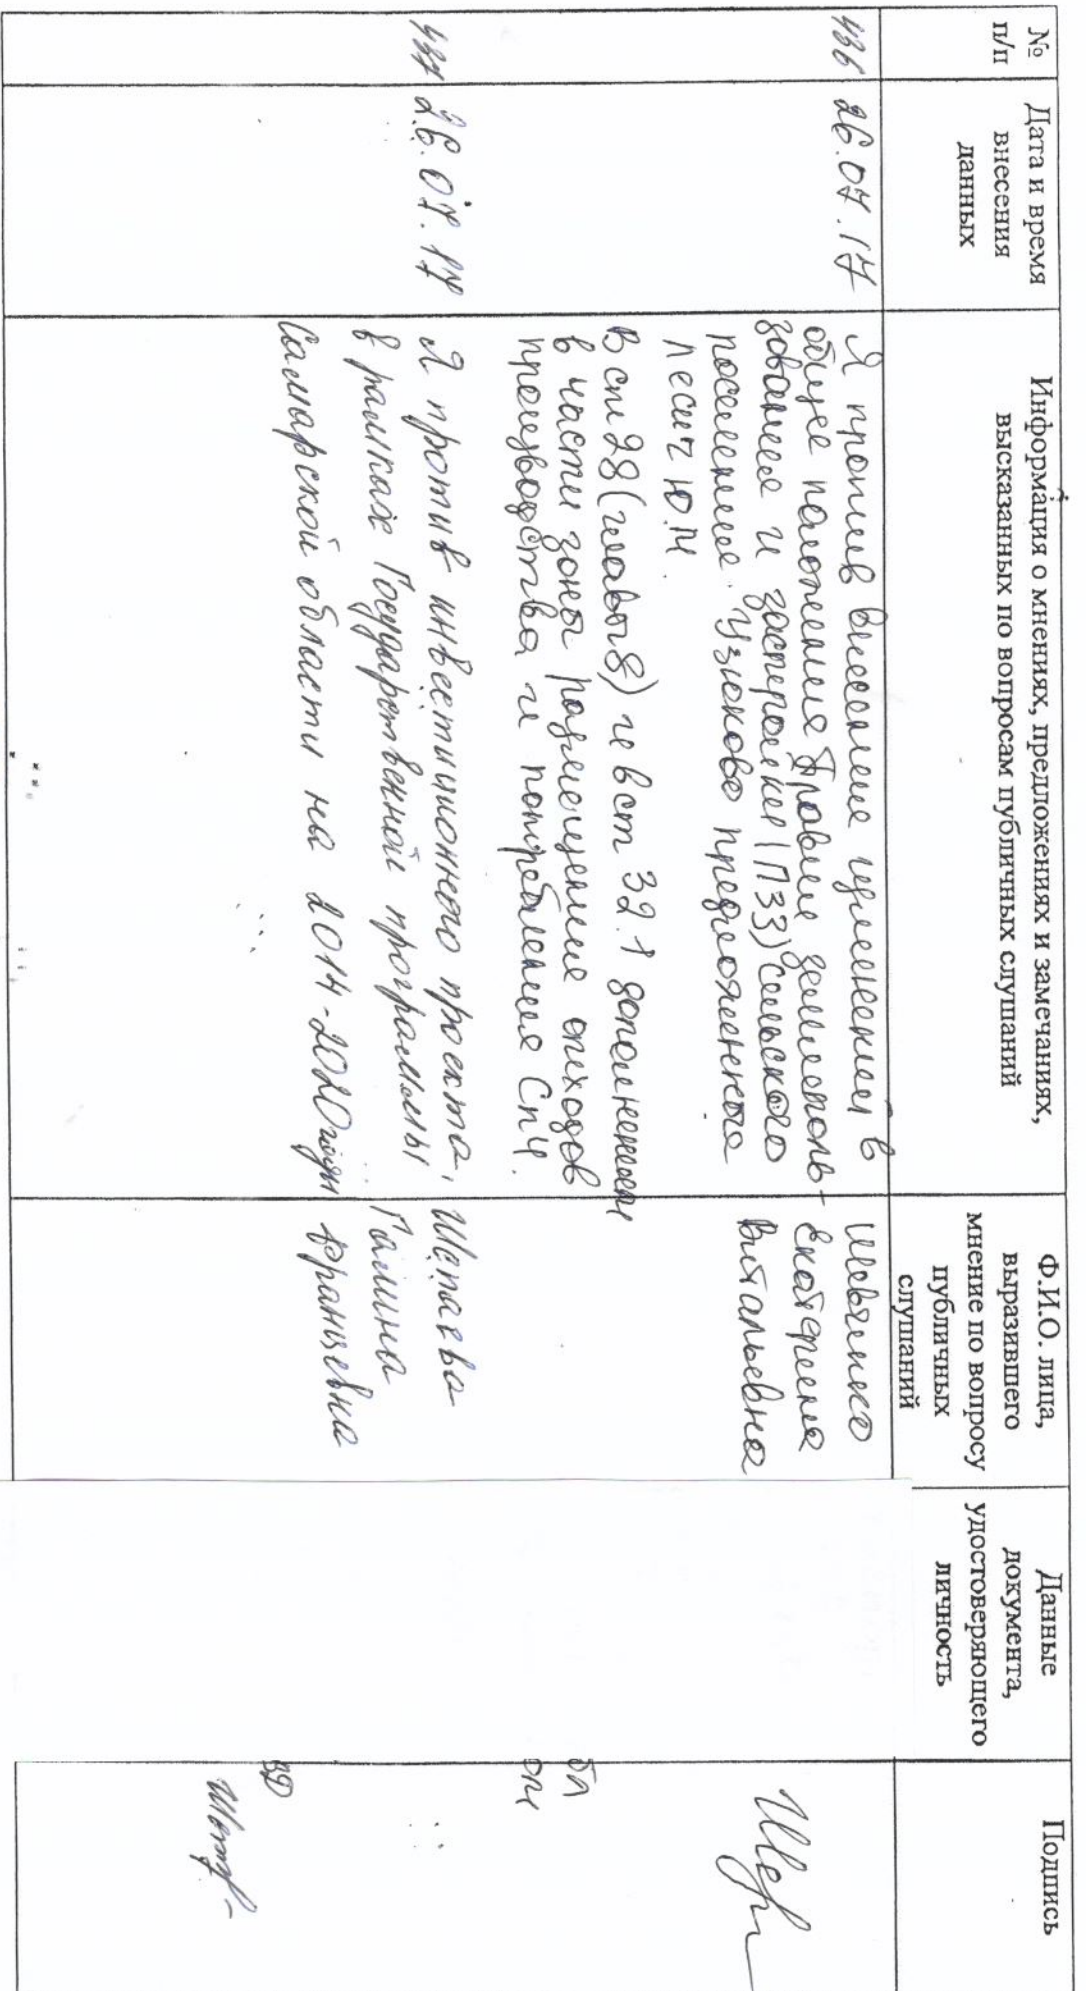 № п/п
Дата и время внесения данных
Информация о мнениях, предложениях и замечаниях,
высказанных по вопросам публичных слушаний
Ф.И.О. лица,
выразившего
мнение по вопросу
публичных
слушаний
Данные
документа,
удостоверяющего
личность
Подпись
436
26.07.17
Я против внесения изменений в
общее положения Правил землеполь-
зования и застройки (ПЗЗ) сельского
поселения Узюково предложенного
Лесич Ю.М.
В ст 28 (главы 8) и в ст 32.1 дополнении
в части зоны размещения отходов
производства и потребления Сп4.
Шевченко
Екатерина
Витальевна
437
26.07.17
Я против инвестиционного проекта,
в рамках Государственной программы
Самарской области на 2014-2020годы
Шапаева
Галина
Францевна